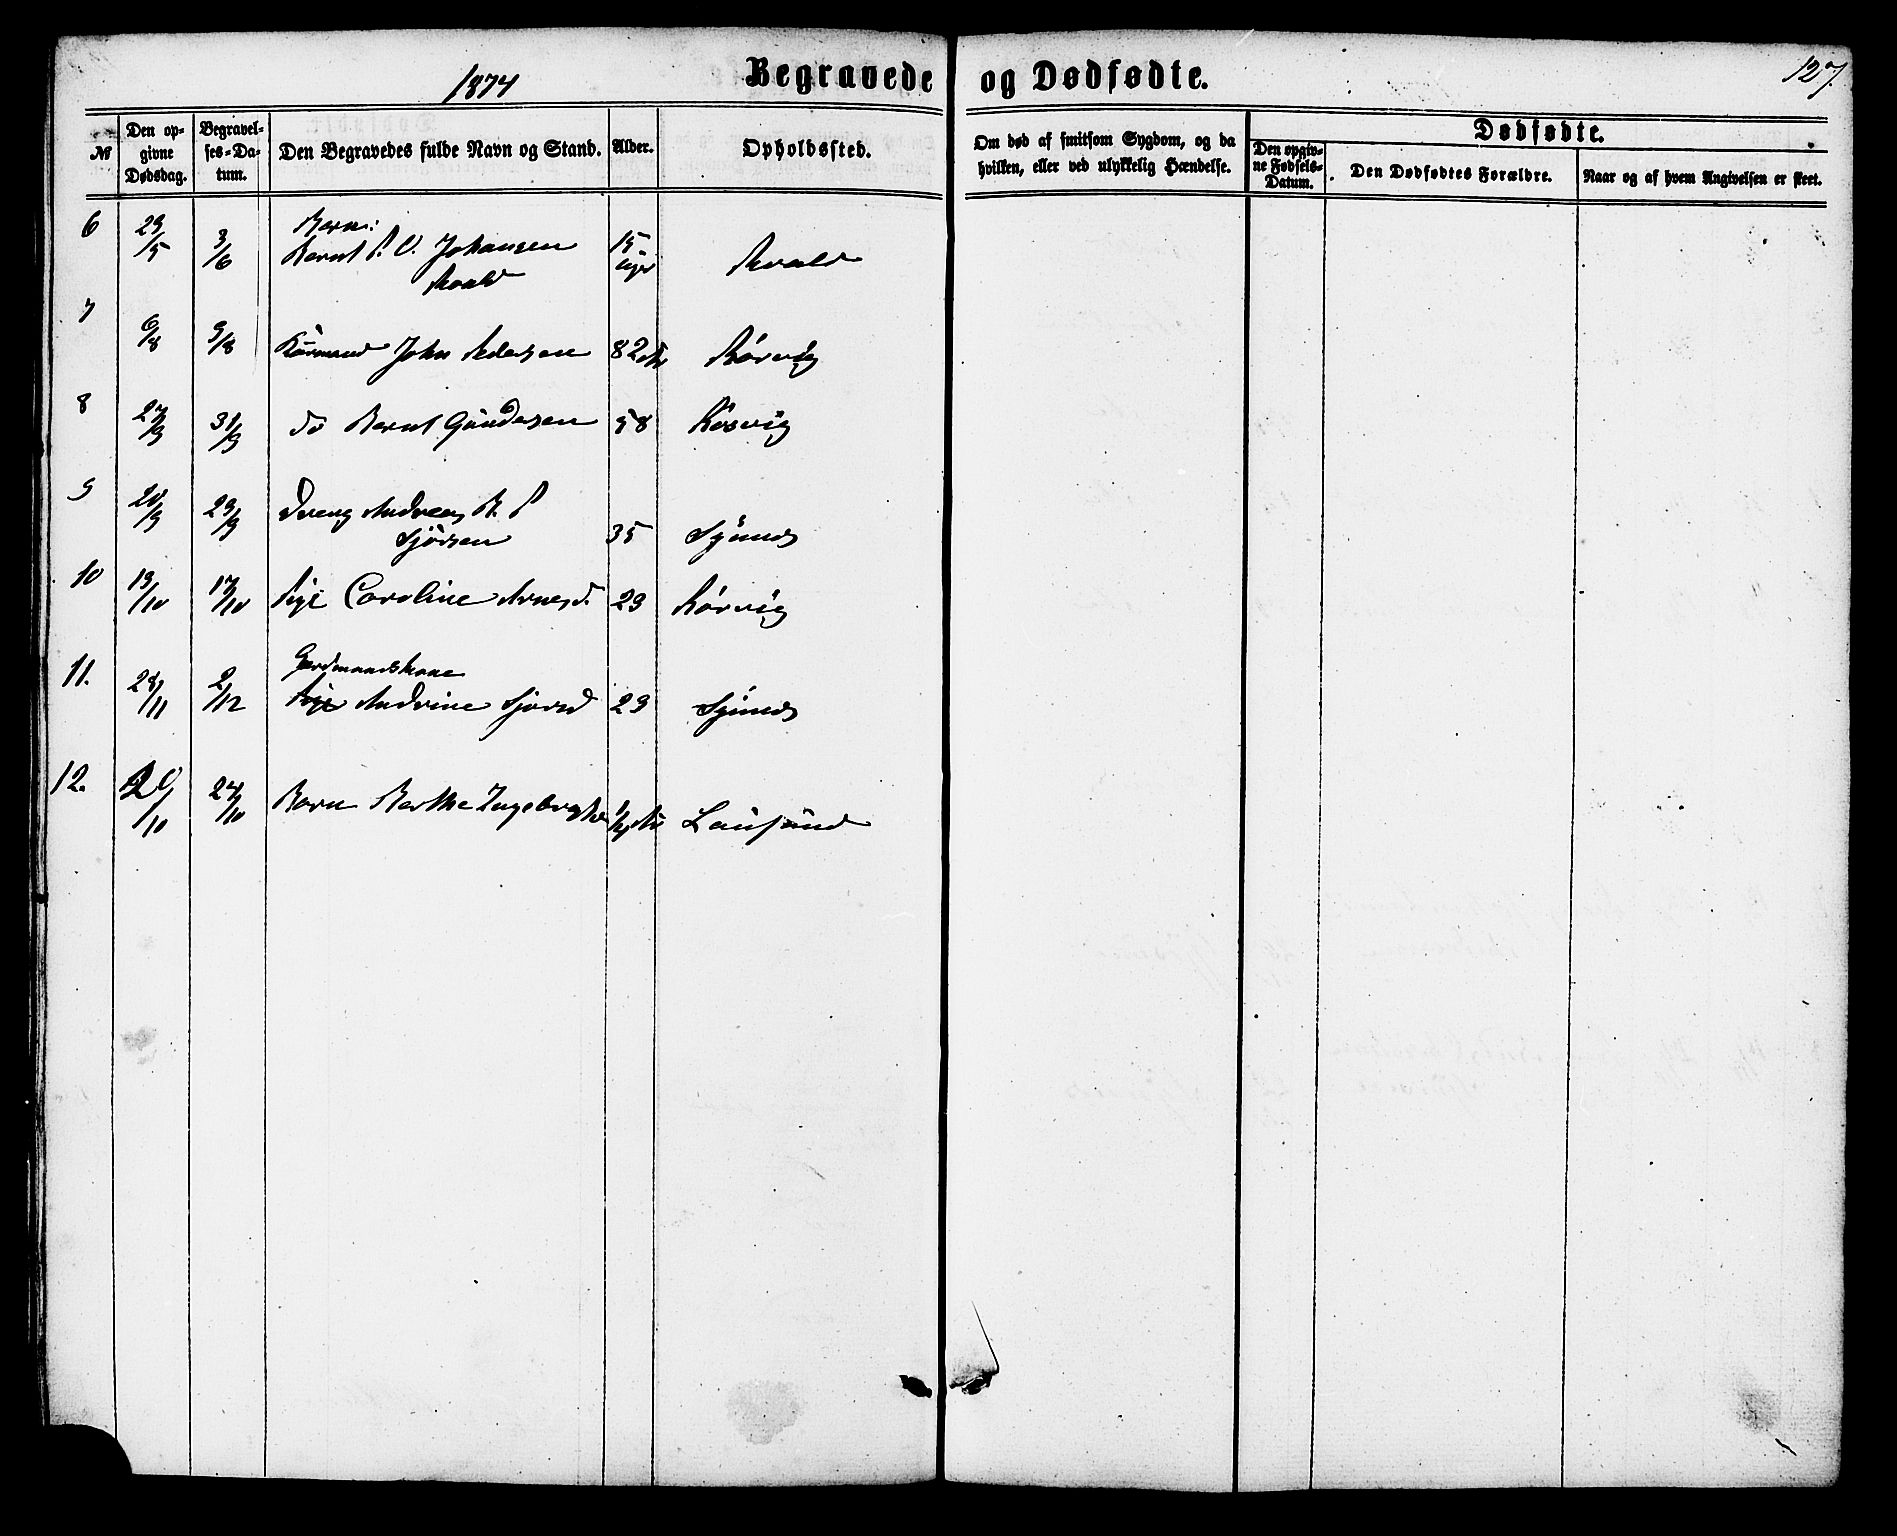 1874
Begravede og Dødfødte.
127.
№
Den opgivne Dødsdag.
Begravelses-Datum.
Den Begravedes fulde Navn og Stand.
Alder.
Opholdssted.
Om død af smitsom Sygdom, og da hvilken, eller ved ulykkelig Hændelse.
Dødfødte.
Den opgivne Fødsels-Datum.
Den Dødfødtes Forældre.
Naar og af hvem Angivelsen er skeet.
6 29/5 3/6 Barn: Bernt P. O. Johansen 15 uger
7 6/8 9/8 Kaarmand John Pedersen 82 Aar Rørvig
8 27/9 31/9 do Bernt Gundersen 58 Rørvig
9 20/9 29/9 Dreng Andreas R. P Sjursen 35
10 13/10 17/10 Pige Caroline Arnesd. 23 Rørvig
11. 28/11 2/12 Gardmandskone Andrine Sjursd 23
12. 20/10 24/10 Barn Berthe Ingeborg 1/4 Aar Lausund